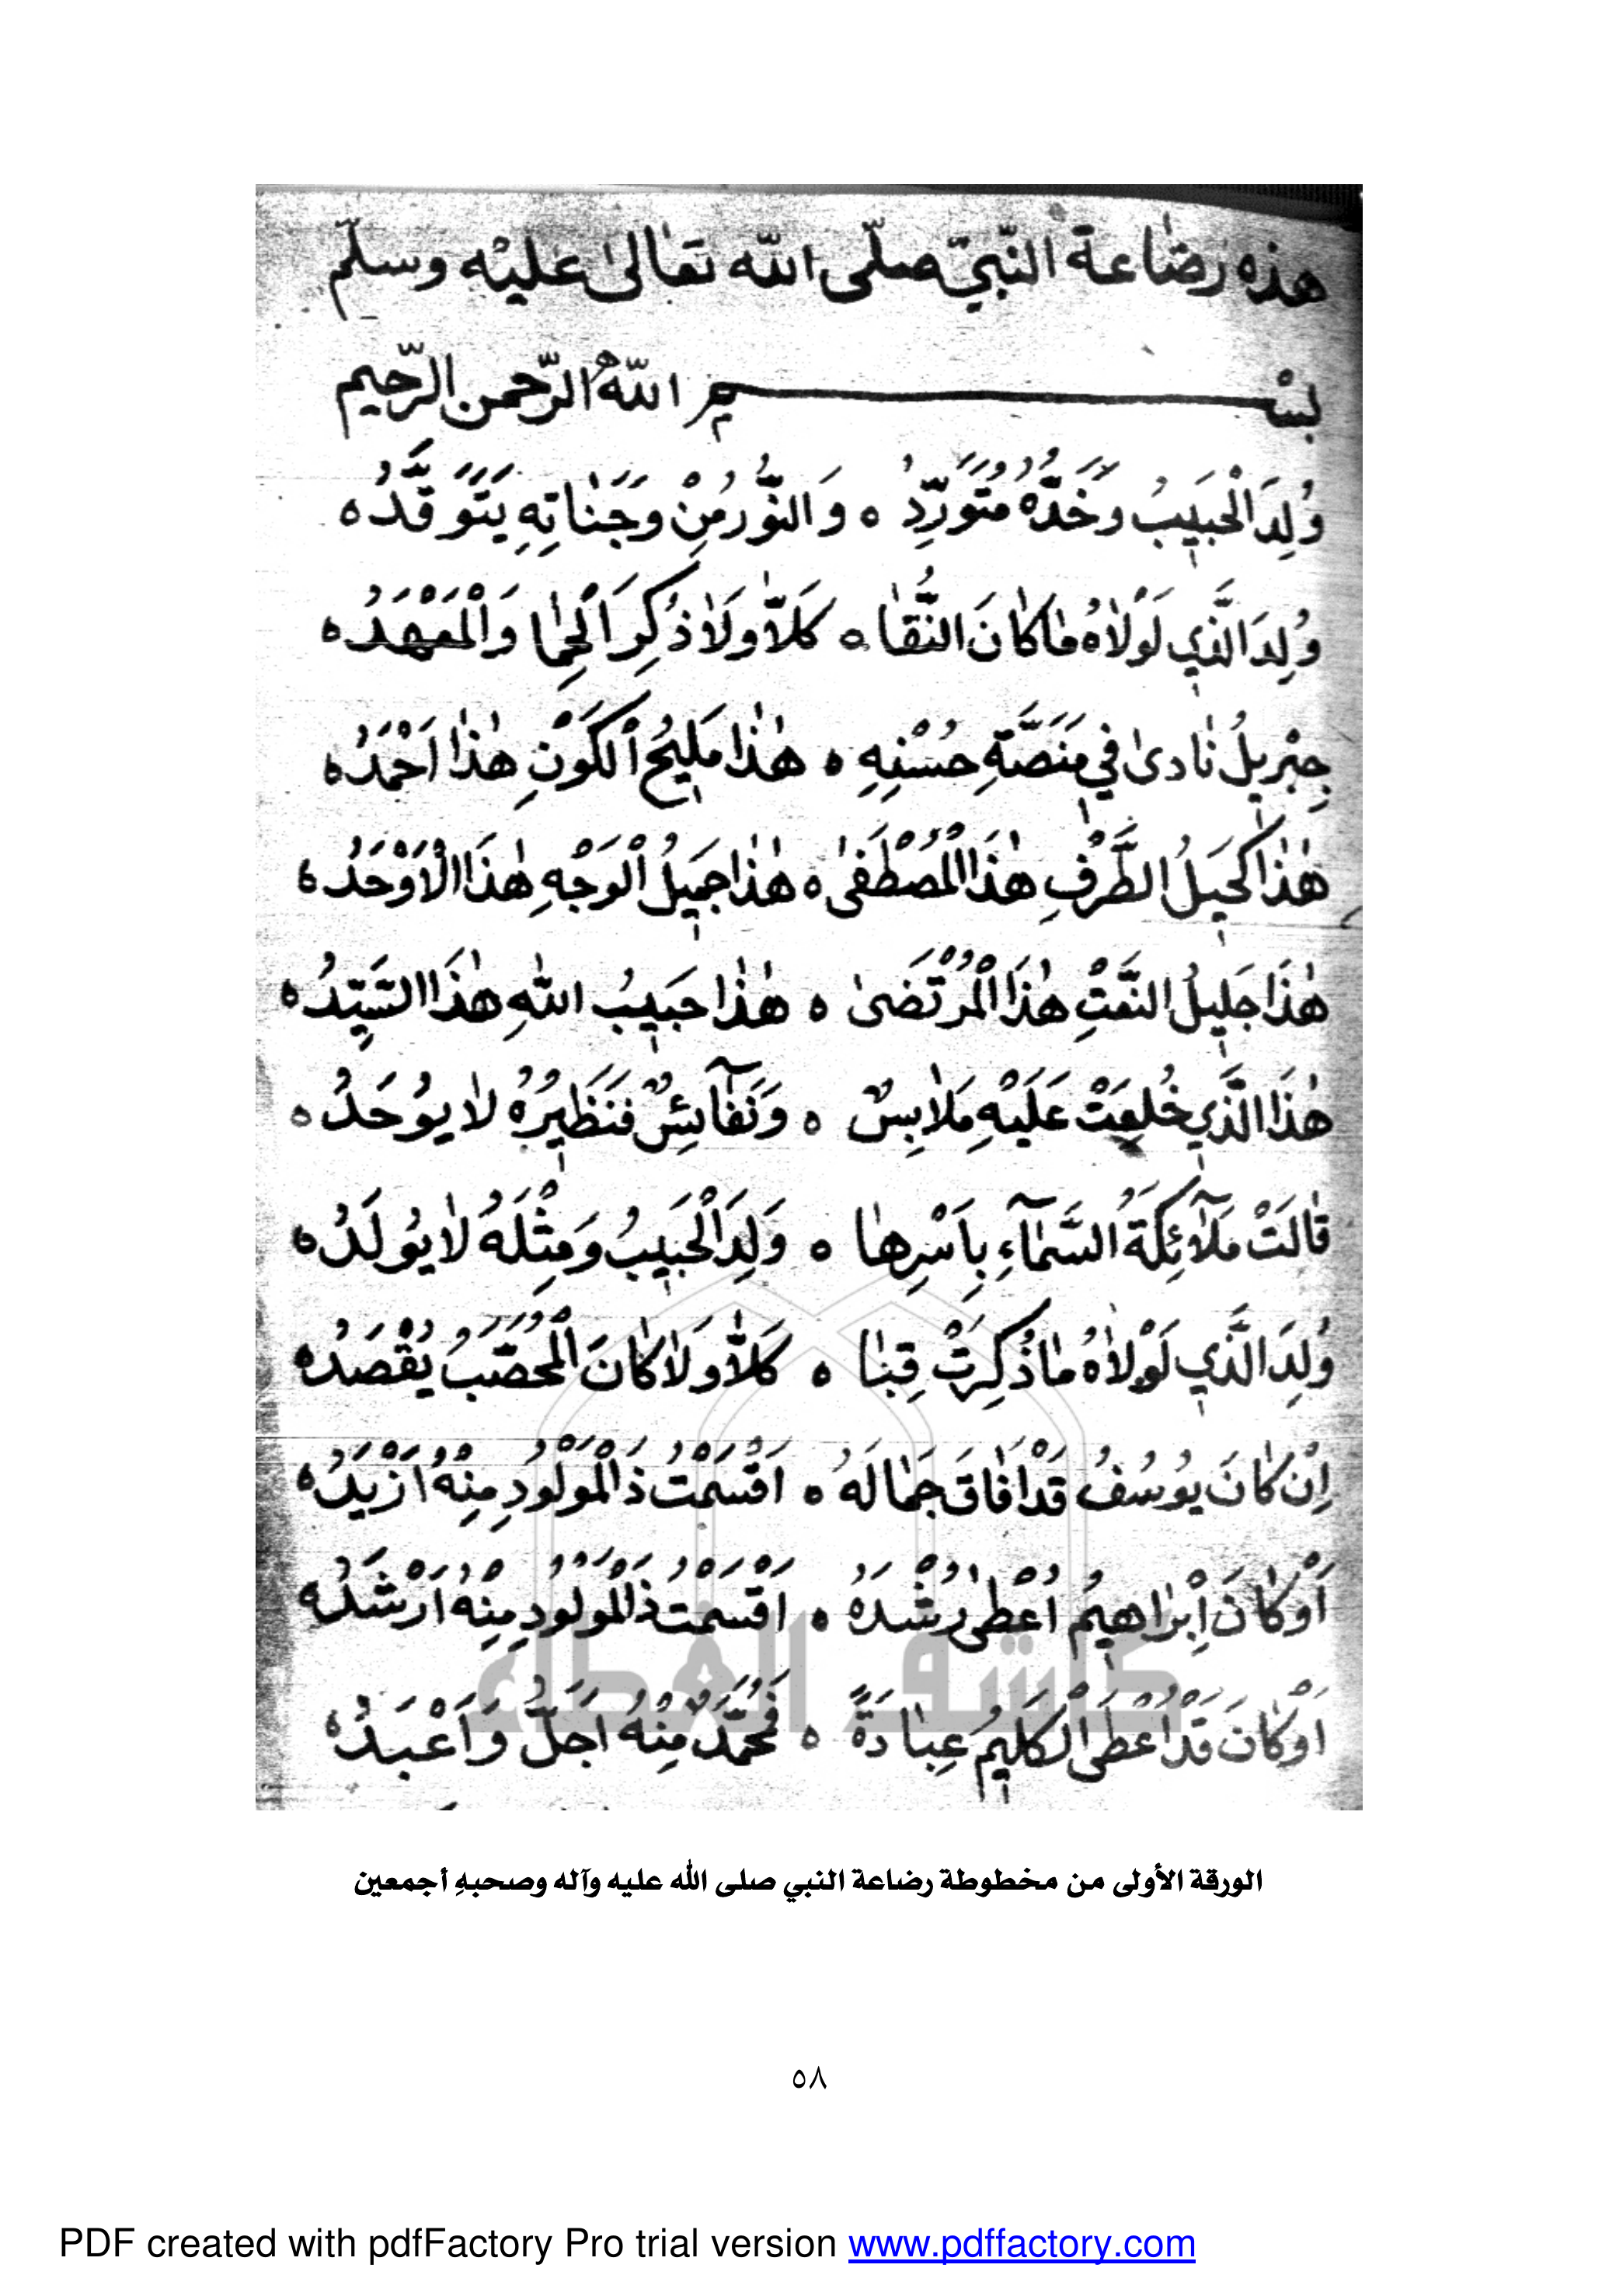 هذه رضاعة النّبيّ صلّى الله تعالى عليْه وسلّم
بسْم اللهُ الرّحمن الرّحيم
وُلِدَ الْحَبِيبُ وَخَدُّهُ مُتَوَرِّدُ ه وَالنُّورُ مِنْ وَجَنَاتِهِ يَتَوَقَّدُ ه
وُلِدَ الَّذِي لَوْلَاهُ مَا كَانَ النُّقَا ه كَلَّا وَلَا ذُكِرَ الْحِمَا وَالْمَعْهَدُ ه
جِبْرِيلُ نَادَى فِي مَنَصَّةِ حُسْنِهِ ه هٰذَا مَلِيحُ الْكَوْنِ هٰذَا اَحْمَدُ ه
هٰذَا كَحِيلُ الطَّرْفِ هٰذَا الْمُصْطَفَى ه هٰذَا جَمِيلُ الْوَجْهِ هٰذَا الْاَوْحَدُ ه
هٰذَا جَلِيلُ النَّعْتِ هٰذَا الْمُرْتَضَى ه هٰذَا حَبِيبُ اللهِ هٰذَا السَّيِّدُ ه
هٰذَا الَّذِي خُلِعَتْ عَلَيْهِ مَلَابِسٌ ه وَنَفَآئِسٌ فَنَظِيرُهُ لَا يُوحَدُ ه
قَالَتْ مَلَآئِكَةُ السَّمَآءِ بِاَسْرِهَا ه وَلِدَ الْحَبِيبُ وَمِثْلَهُ لَا يُولَدُ ه
وُلِدَ الَّذِي لَوْلَاهُ مَا ذُكِرَتْ قِبَا ه كَلَّا وَلَا كَانَ الْمُحَصَّبُ يُقْصَدُ ه
اِنْ كَانَ يُوسُفُ قَدْ اَفَاقَ جَمَالَهُ ه اَقْسَمْتُ ذَالْمَوْلُودِ مِنْهُ اَزْيَدُ ه
اَوْ كَانَ اِبْرَاهِيمُ اُعْطِىَ رُشْدَهُ ه اَقْسَمْتُ ذَالْمَوْلُودِ مِنْهُ اَرْشَدُ ه
اَوْ كَانَ قَدْ اُعْطَى الْكَلِيمُ عِبَادَةً ه فَمُحَمَّدٌ مِنْهُ اَجَلُّ وَاَعْبَدُ ه
كاشف الغطاء
الورقة الأولى من مخطوطة رضاعة النبي صلى الله عليه وآله وصحبهِ أجمعين
٥٨
PDF created with pdfFactory Pro trial version www.pdffactory.com